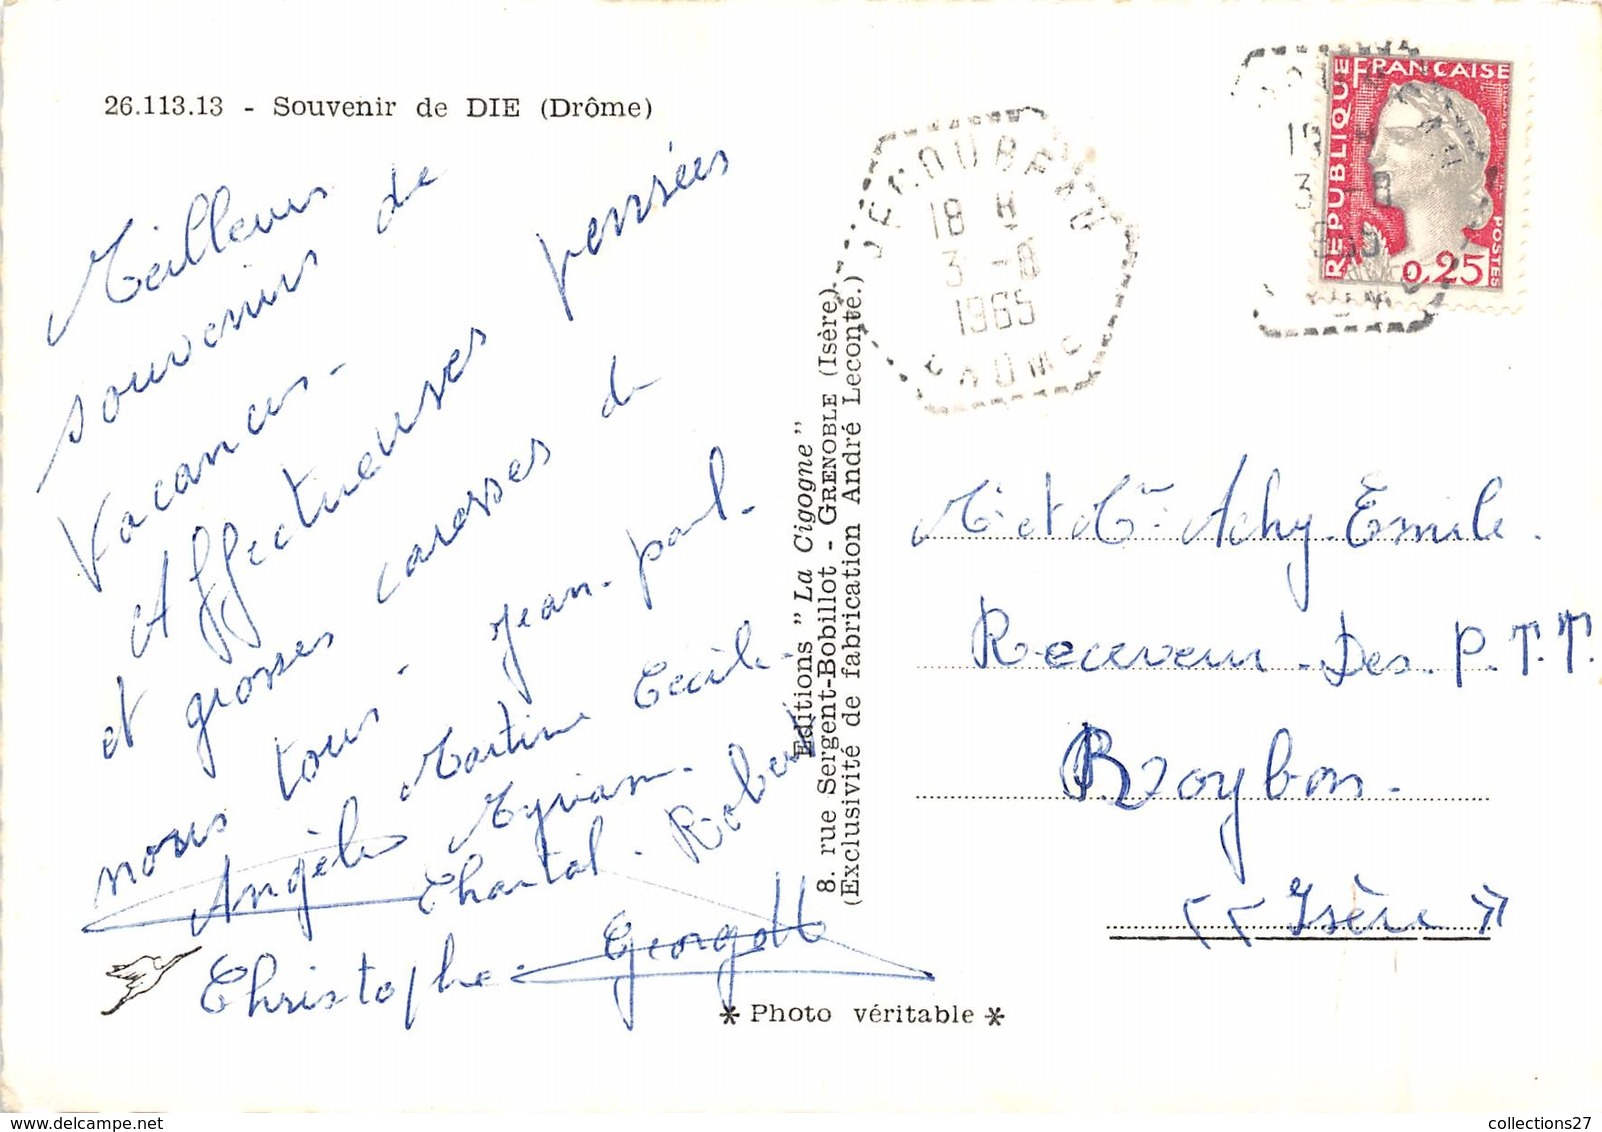 26.113.13 - Souvenir de DIE (Drôme)
Meilleurs
souvenirs de
Vacances -
Affectueuses pensées
et grosses caresses de
nous tous - Jean-paul -
Angèle Martine Cécile -
Myriam -
Chantal - Robert
Christophe -
Editions "La Cigogne"
8. rue Sergent-Bobillot - GRENOBLE (Isère).
(Exclusivité de fabrication André Leconte.)
* Photo véritable *
18 H
3 -8
1965
DROME
REPUBLIQUE FRANÇAISE
POSTES
0,25
3 -8
M. et Mme Achy Emile.
Receveur. Des. P.T.T.
Roybon.
<<Isère>>
collections27